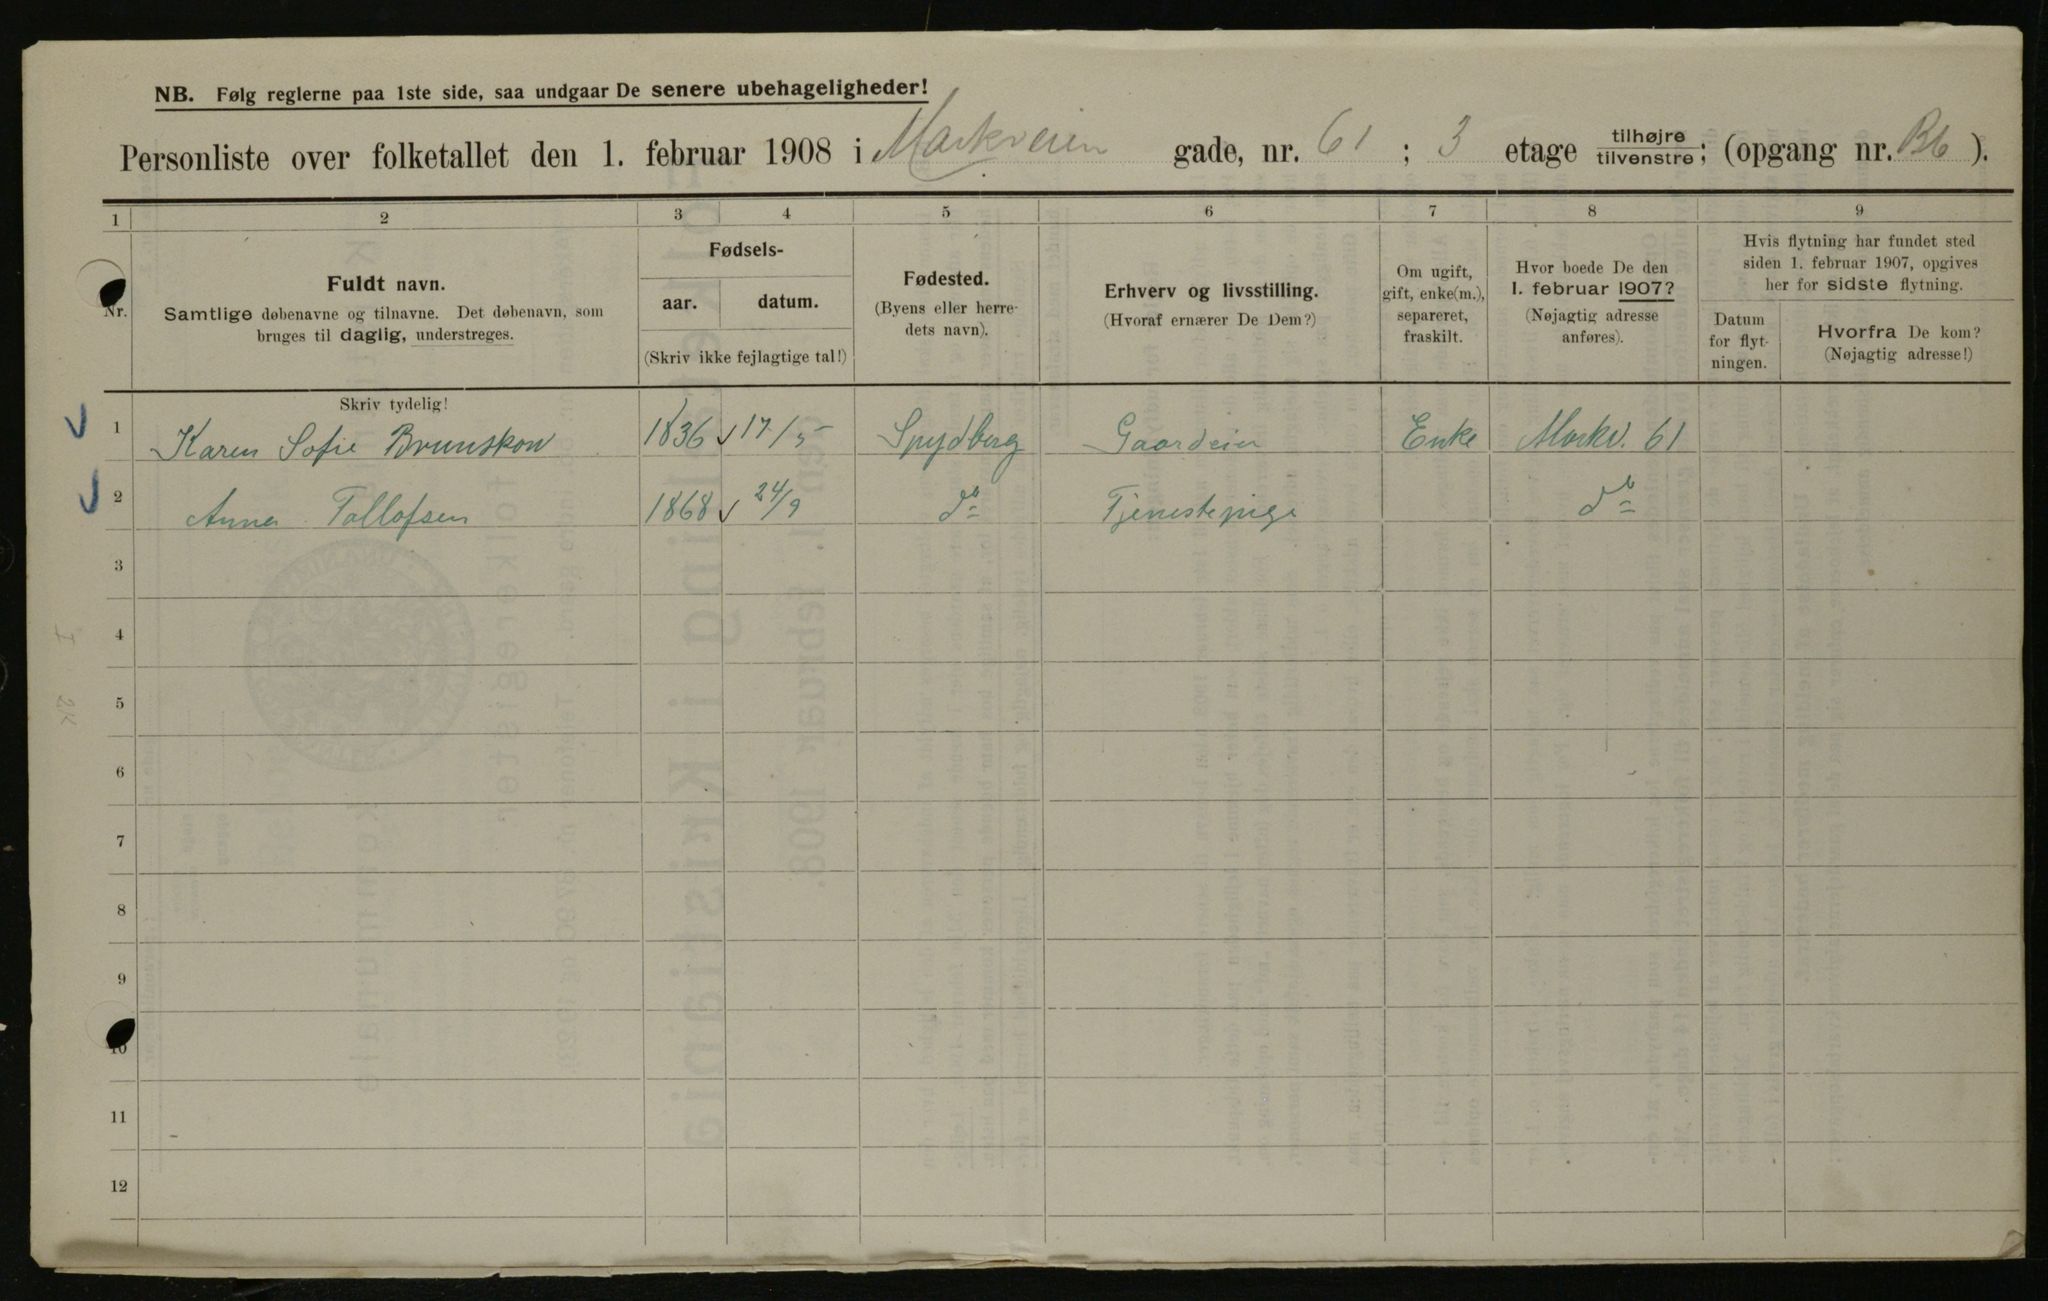 NB. Følg reglerne paa 1ste side, saa undgaar De senere ubehageligheder!
Personliste over folketallet den 1. februar 1908 i Markveien gade, nr. 61; 3 etage tilhøjre tilvenstre; (opgang nr. Bb).
1 2 3 4 5 6 7 8 9
Nr.
Fuldt navn.
Samtlige døbenavne og tilnavne. Det døbenavn, som
bruges til daglig, understreges.
Fødsels-
aar. datum.
(Skriv ikke fejlagtige tal!)
Fødested.
(Byens eller herre-
dets navn).
Erhverv og livsstilling.
(Hvoraf ernærer De Dem?)
Om ugift,
gift, enke(m.),
separeret,
fraskilt.
Hvor boede De den
1. februar 1907?
(Nøjagtig adresse
anføres).
Hvis flytning har fundet sted
siden 1. februar 1907, opgives
her for sidste flytning.
Datum
for flyt-
ningen.
Hvorfra De kom?
(Nøjagtig adresse!)
Skriv tydelig!
1 Karen Sofie Brunskow 1836 17/5 Spydberg Gaardeier Enke Markv. 61
2 Anna Tollofsen 1868 24/9 do Tjenestepige do
3
4
5
6
7
8
9
10
11
12